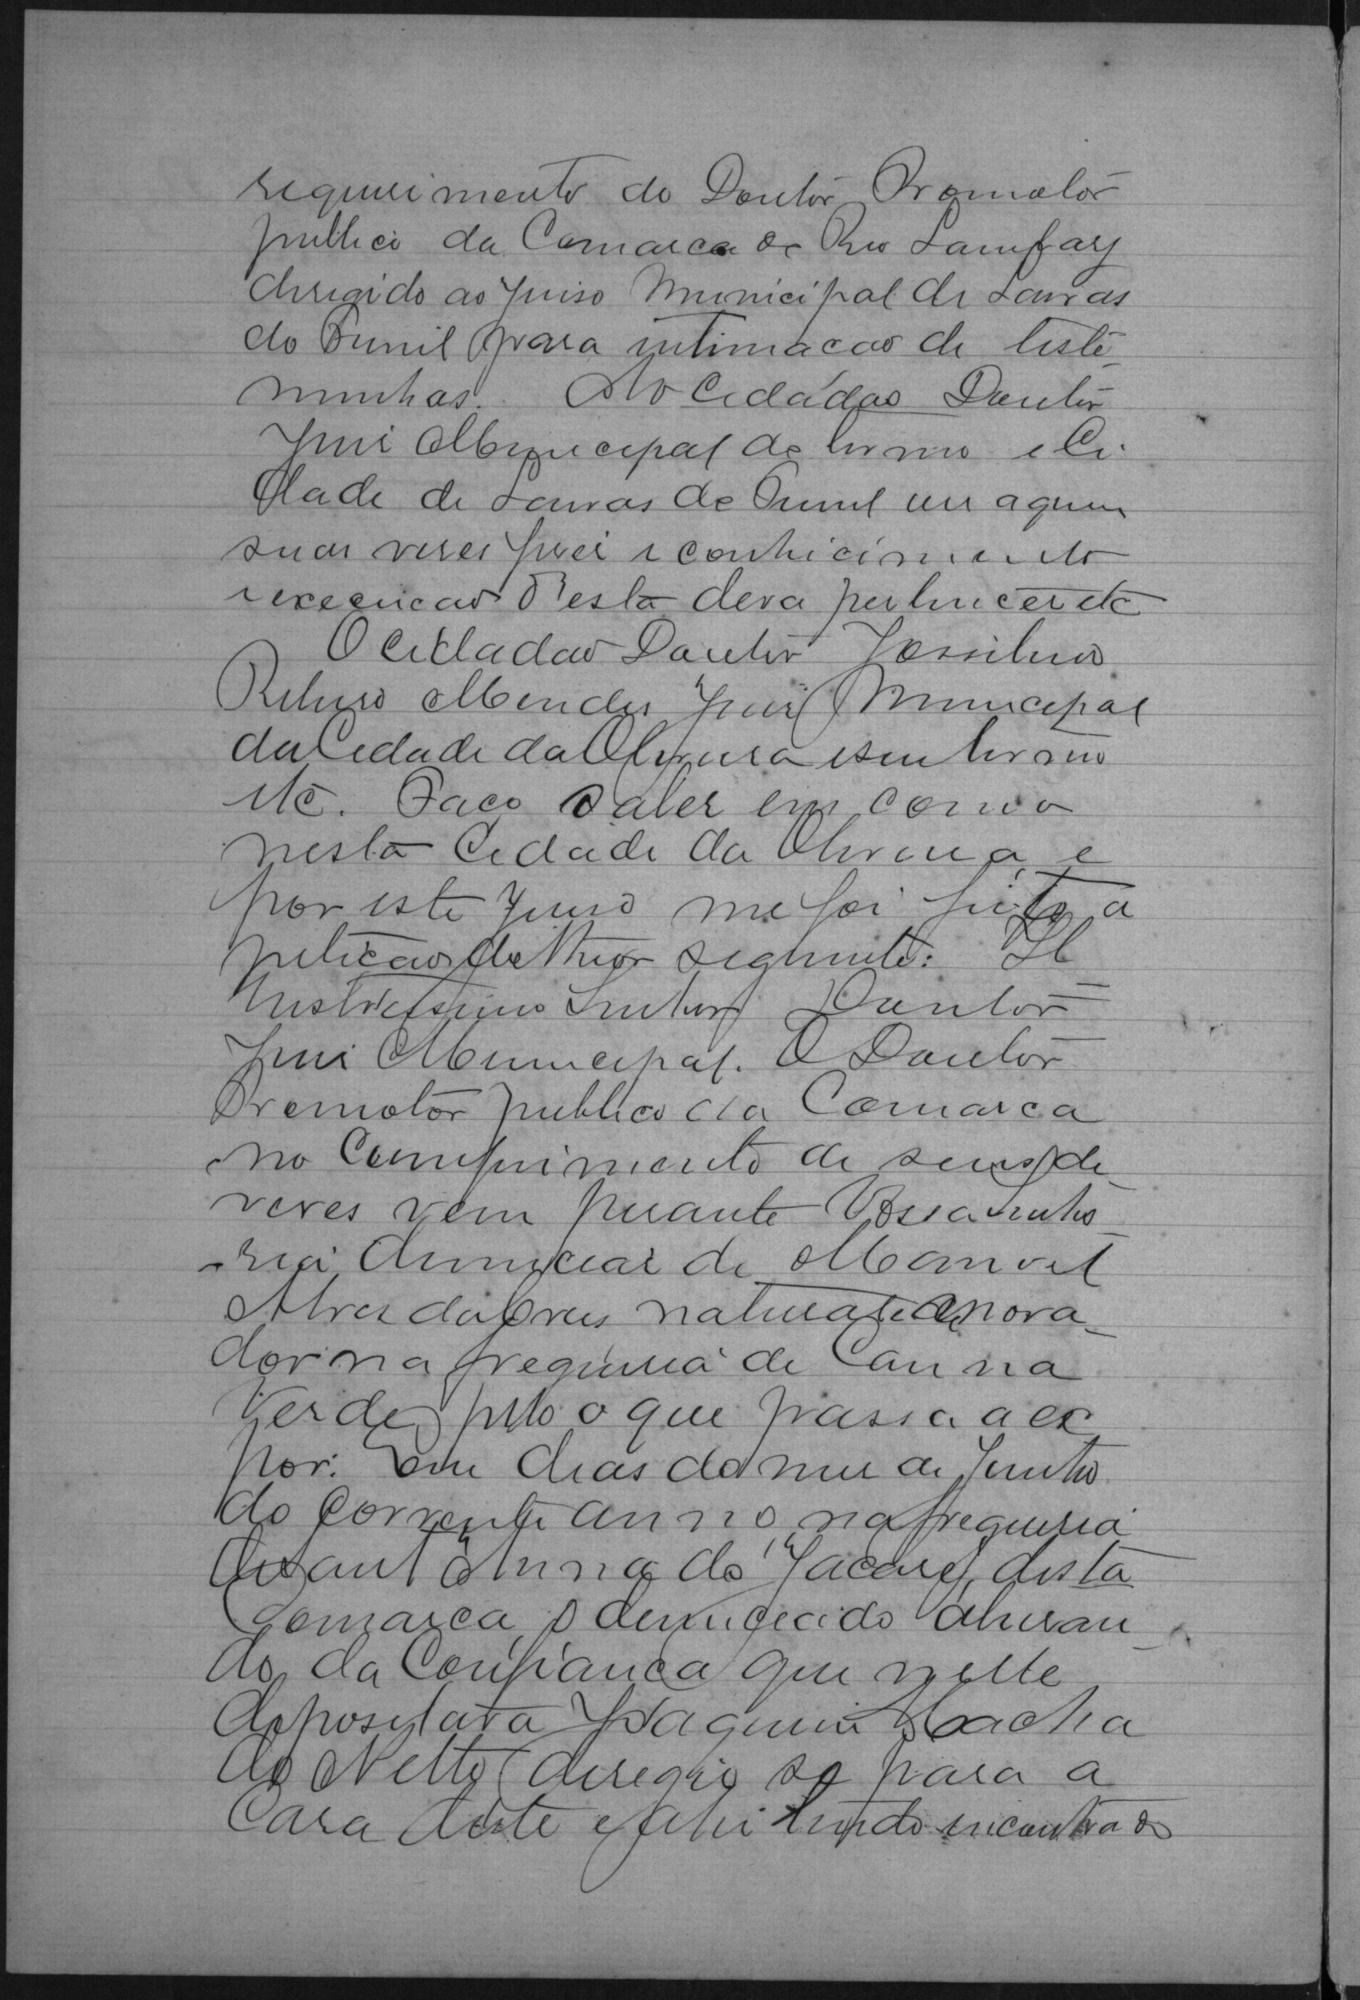 requerimento do Doutor Promotor
publico da Comarca do Rio Lambary
dirigido ao Juiso Municipal de Lavras
do Funil para intimacao de teste
munhas. Ao Cedádao Doutor
Juis Municipal do termo e Ci
dade de Lavras do Funil ou a quem
suas veses fizer e conhicimento
e execucao d'esta deva pertencer etc
O Cidadao Doutor Josselino
Ribeiro Mendes Juis Municipal
da Cedade da Oliveira e seu termo
etc. Faco saber em como
nesta Cedade da Oliveira e
por este Juiso me foi feita a
peticao do theor seguinte: Il
lustrissimo Senhor Doutor
Juis Municipal. O Doutor
Promotor publico da Comarca
no Cumprimento de seus de
veres vem perante Vossa Senho
ria denunciar de Manoel
Alves da natural e mora
dor na freguesia de Canna
Verde pelo o que passa a ex
por: Em dias do mes de Junho
do Corrente anno na freguesia
de Sant'Anna do Jacaré, desta
Comarca, o denunciado abusan
do da Confianca que nelle
depositava Joaquim Macha
do Netto deregio se para a
Casa deste e ahi tendo encontrado